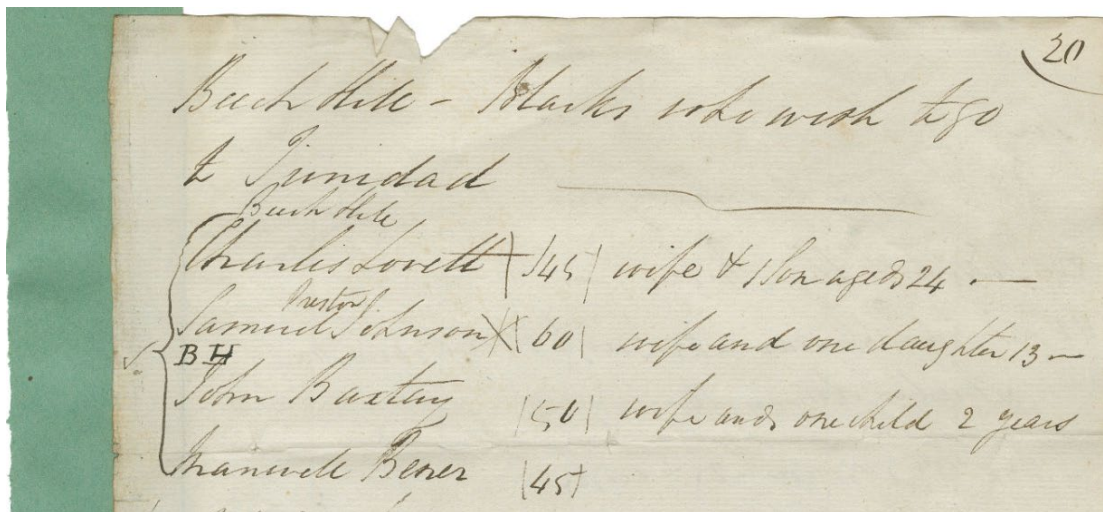 20
Beech Hill - Blacks who wish to go
to Trinidad
Beech Hill
Charles Lovett (45) wife & 1 Son aged 24 —
Preston
Samuel Johnson (60) wife and one daughter 13 —
BH
John Baxter (50) wife and one child 2 years
(45)